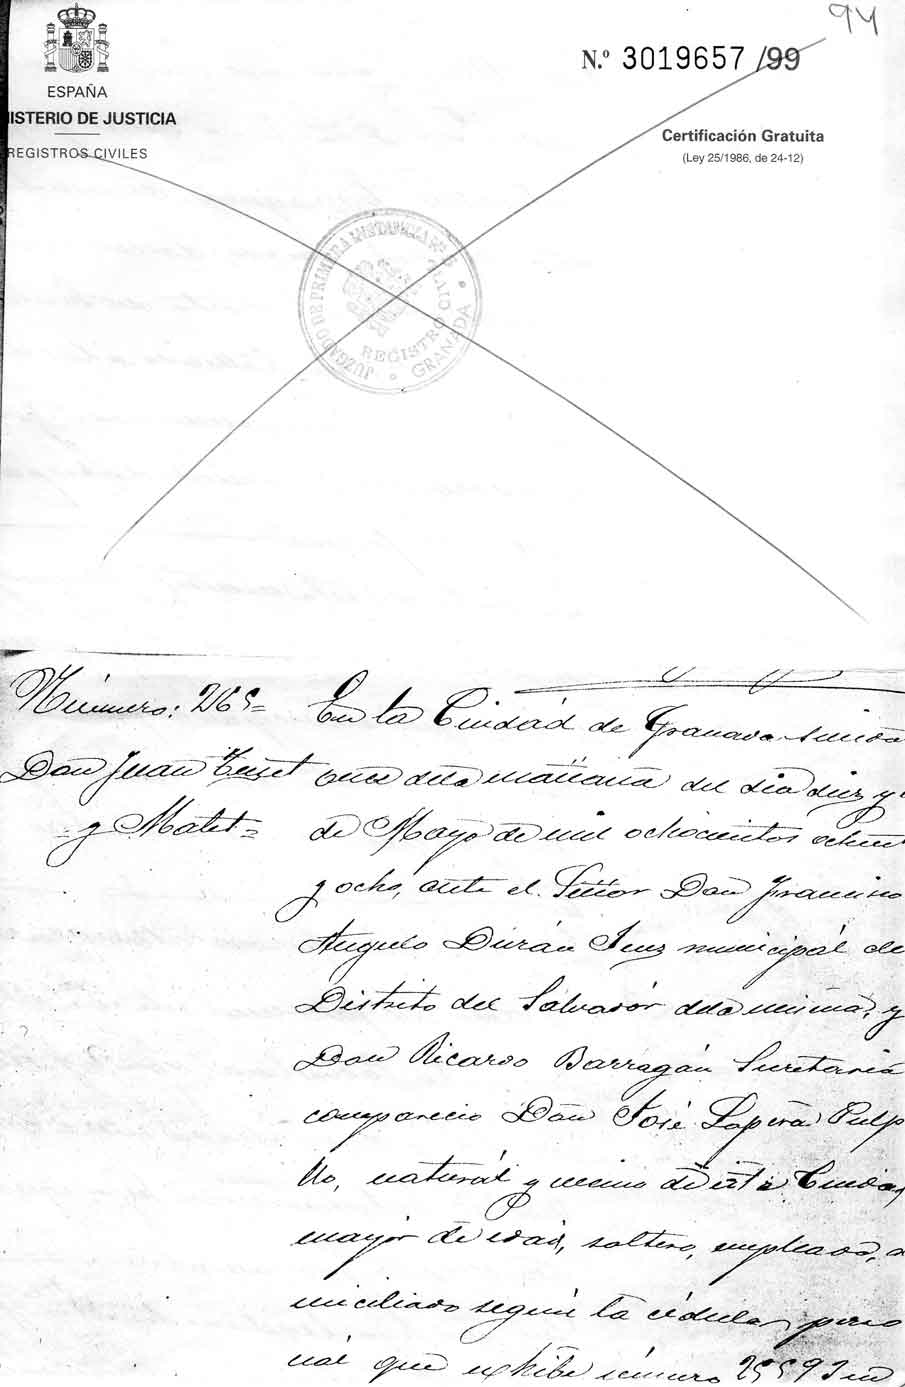 94
ESPAÑA
ISTERIO DE JUSTICIA
REGISTROS CIVILES
N.º 3019657 /99
Certificación Gratuita
(Ley 25/1986, de 24-12)
JUZGADO DE PRIMERA INSTANCIA
REGISTRO CIVIL
GRANADA
Número: 265=
Don Juan
y Malet=
En la Ciudad de Granada siendo
once dela mañana del dia diez y
de Mayo de mil ochocientos ochen
y ocho, ante el Señor Don Francisco
Angulo Durán Juez municipál de
Distrito del Salvador dela misma, y
Don Ricardo Barragán Secretario
compareció Don José Lapeña Pulp
llo, naturál y vecino de esta Ciudad
mayor de edad, soltero, empleado, do
miciliado según la cédula perso
nal que exhibe número